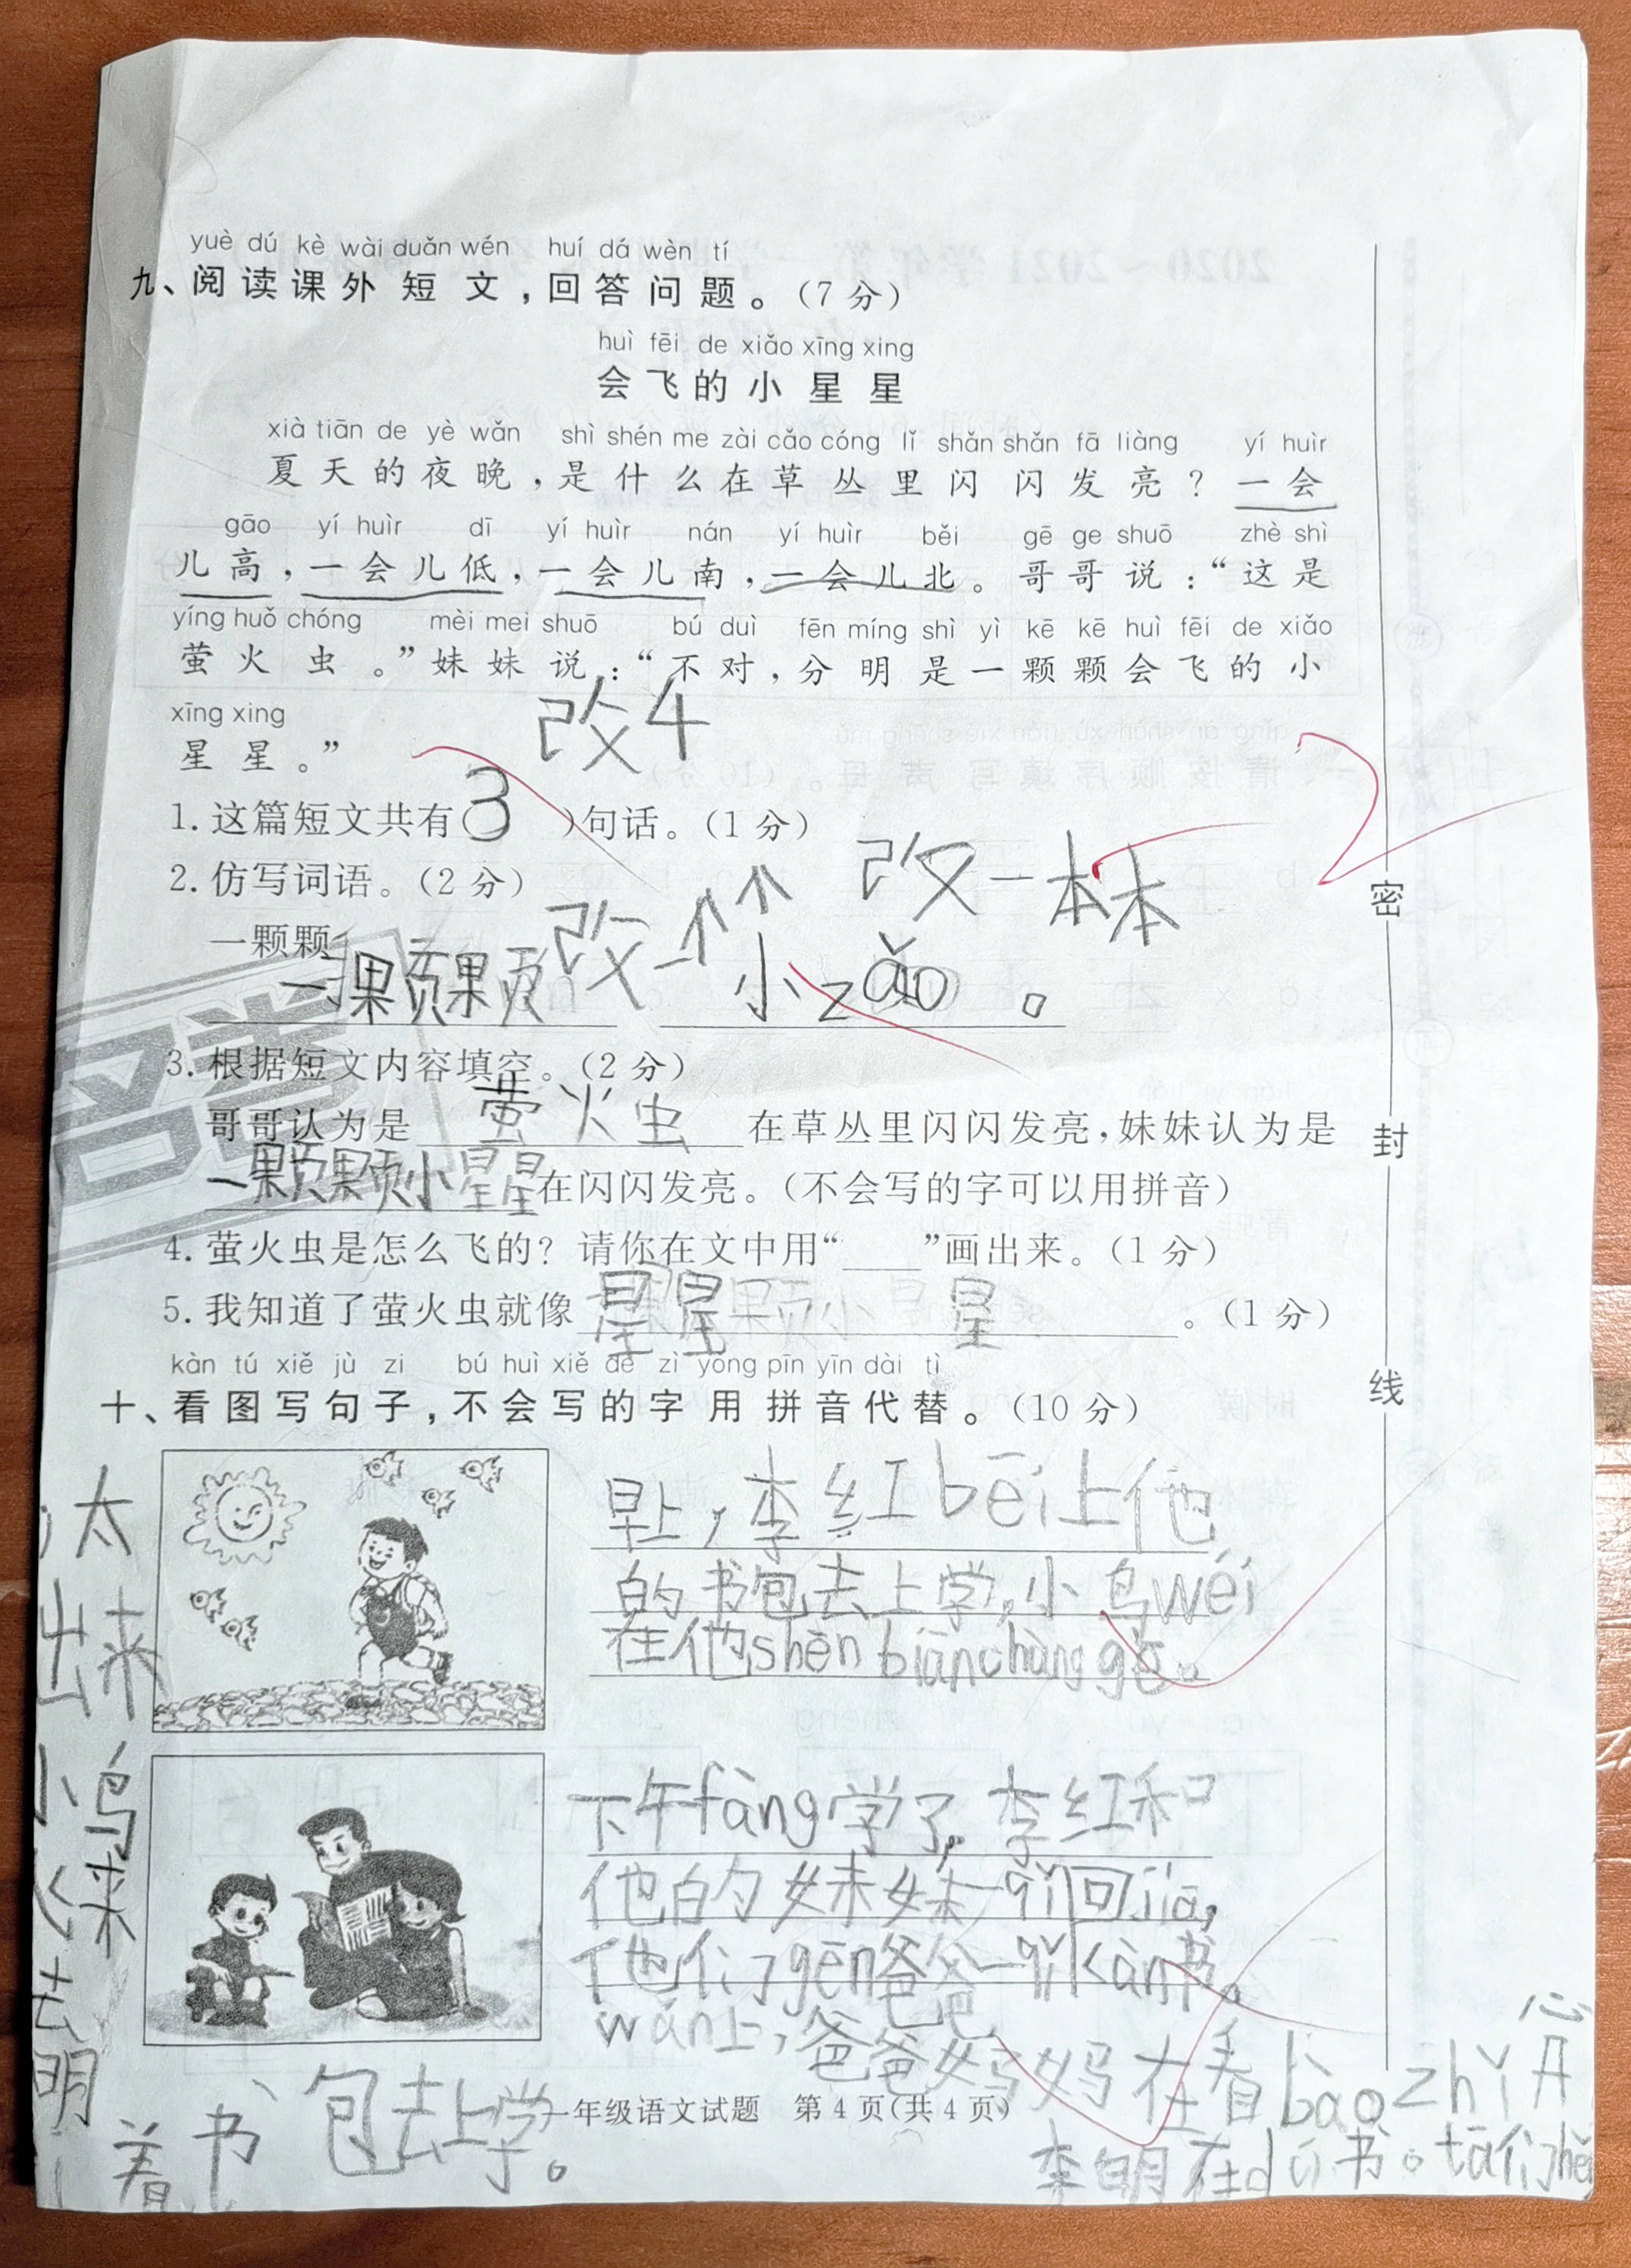 yuè dú kè wài duǎn wén huí dá wèn tí
九、阅读课外短文,回答问题。(7分)
huì fēi de xiǎo xīng xing
会飞的小星星
xià tiān de yè wǎn shì shén me zài cǎo cóng lǐ shǎn shǎn fā liàng yí huìr
夏天的夜晚,是什么在草丛里闪闪发亮?一会
gāo yí huìr dī yí huìr nán yí huìr běi gē ge shuō zhè shì
儿高,一会儿低,一会儿南,一会儿北。哥哥说:“这是
yíng huǒ chóng mèi mei shuō bú duì fēn míng shì yì kē kē huì fēi de xiǎo
萤火虫。”妹妹说:“不对,分明是一颗颗会飞的小
xīng xing
星星。”
改4
1.这篇短文共有(3)句话。(1分)
2.仿写词语。(2分)
改一本本
一颗颗
改一个个
一颗颗 小zǎo。
3.根据短文内容填空。(2分)
哥哥认为是萤火虫在草丛里闪闪发亮,妹妹认为是
一颗颗小星星在闪闪发亮。(不会写的字可以用拼音)
4.萤火虫是怎么飞的?请你在文中用“____”画出来。(1分)
5.我知道了萤火虫就像星星颗小星星。(1分)
kàn tú xiě jù zi bú huì xiě de zì yòng pīn yīn dài tì
十、看图写句子,不会写的字用拼音代替。(10分)
早上,李红bēi上他
的书包去上学,小鸟wéi
在他shēn biān chàng gē。
下午fàng学了,李红和
他的妹妹一qǐ回jiā,
他们gēn爸爸一qǐ kàn书。
wǎn上,爸爸妈妈在看bào zhǐ
李明在dú书。tā们
太
出来
小鸟
来
去
明
着书包去上学。
一年级语文试题 第4页(共4页)
密
封
线
名卷